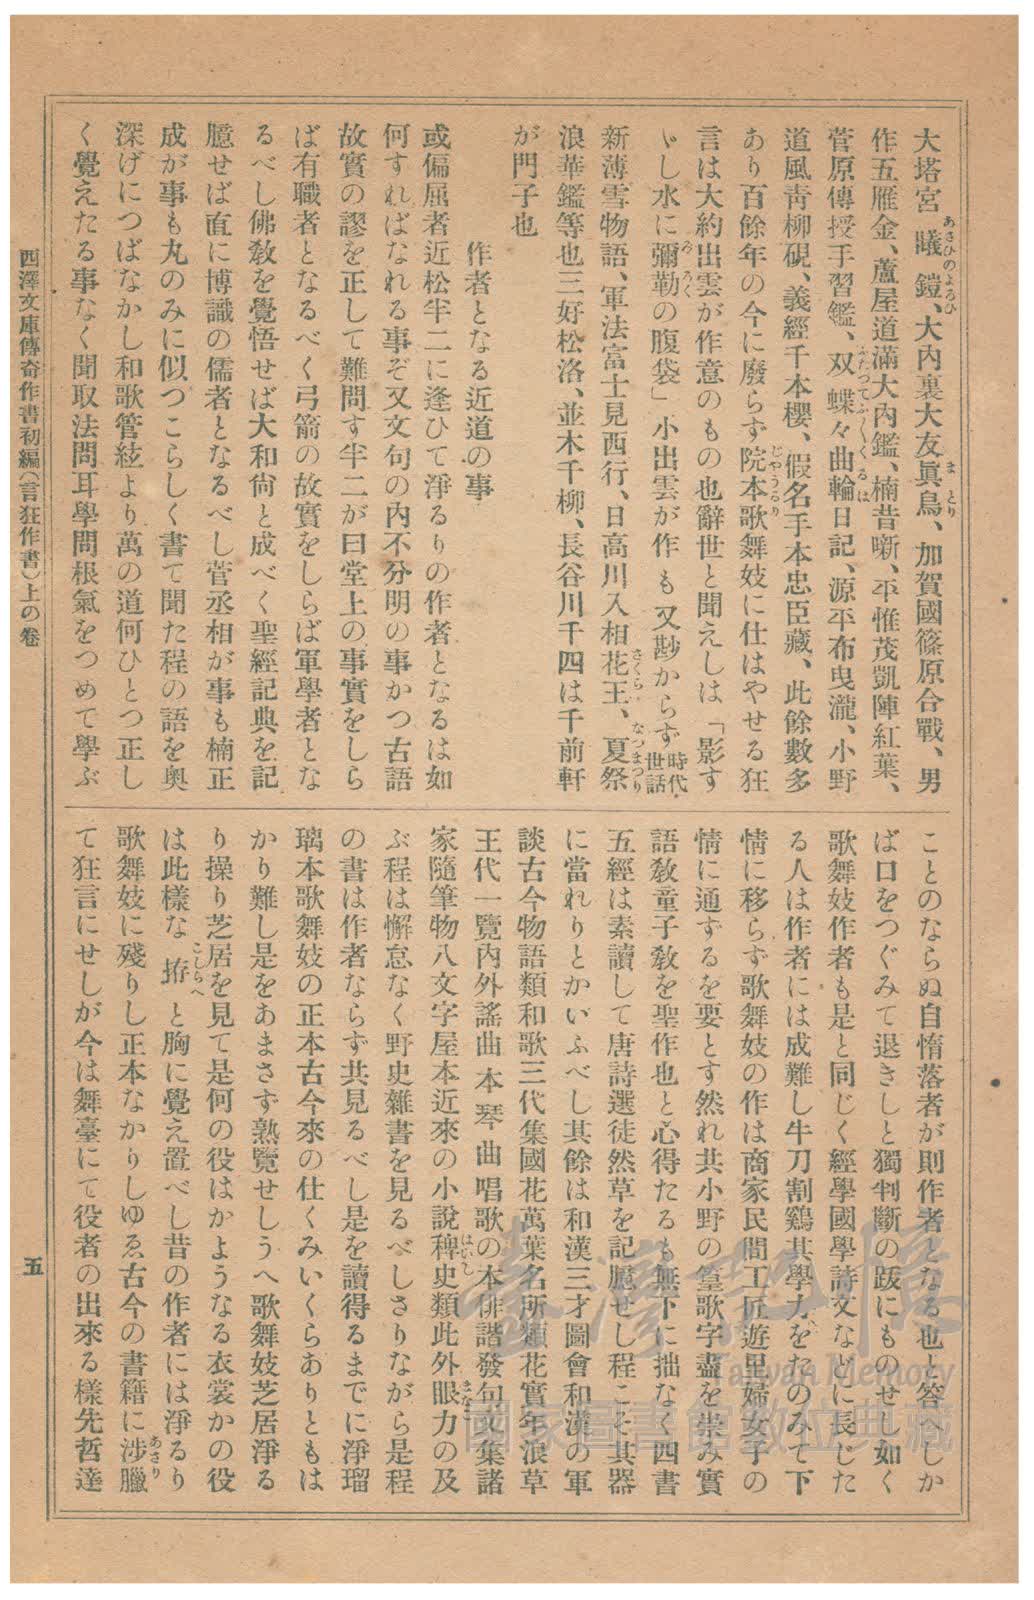 大塔宮曦鎧、大內裏大友眞鳥、加賀國篠原合戰、男
作五雁金、蘆屋道滿大內鑑、楠昔噺、平惟茂凱陣紅葉、
菅原傳授手習鑑、双蝶々曲輪日記、源平布曳瀧、小野
道風靑柳硯、義經千本櫻、假名手本忠臣藏、此餘數多
あり百餘年の今に廢らず院本歌舞妓に仕はやせる狂
言は大約出雲が作意のもの也辭世と聞えしは「影す
ゞし水に彌勒の腹袋」小出雲が作も又尠からず時代世話
新薄雪物語、軍法富士見西行、日高川入相花王、夏祭
浪華鑑等也三好松洛、並木千柳、長谷川千四は千前軒
が門子也
作者となる近道の事
或偏屈者近松半二に逢ひて淨るりの作者となるは如
何すればなれる事ぞ又文句の內不分明の事かつ古語
故實の謬を正して難問す半二が曰堂上の事實をしら
ば有職者となるべく弓箭の故實をしらば軍學者とな
るべし佛敎を覺悟せば大和尙と成べく聖經記典を記
臆せば直に博識の儒者となるべし菅丞相が事も楠正
成が事も丸のみに似つこらしく書て聞た程の語を奧
深げにつばなかし和歌管絃より萬の道何ひとつ正し
く覺えたる事なく聞取法問耳學問根氣をつめて學ぶ
ことのならぬ自惰落者が則作者となる也と答へしか
ば口をつぐみて退きしと獨判斷の跋にものせし如く
歌舞妓作者も是と同じく經學國學詩文などに長じた
る人は作者には成難し牛刀割鷄其學力をたのみて下
情に移らず歌舞妓の作は商家民間工匠遊里婦女子の
情に通ずるを要とす然れ共小野の篁歌字盡を崇み實
語敎童子敎を聖作也と心得たるも無下に拙なく四書
五經は素讀して唐詩選徒然草を記臆せし程こそ其器
に當れりとかいふべし其餘は和漢三才圖會和漢の軍
談古今物語類和歌三代集國花萬葉名所類花實年浪草
王代一覽內外謠曲本琴曲唱歌の本俳諧發句文集諸
家隨筆物八文字屋本近來の小說稗史類此外眼力の及
ぶ程は懈怠なく野史雜書を見るべしさりながら是程
の書は作者ならず共見るべし是を讀得るまでに淨瑠
璃本歌舞妓の正本古今來の仕くみいくらありともは
かり難し是をあまさず熟覽せしうへ歌舞妓芝居淨る
り操り芝居を見て是何の役はかようなる衣裳かの役
は此樣な拵と胸に覺え置べし昔の作者には淨るり
歌舞妓に殘りし正本なかりしゆゑ古今の書籍に涉臘
て狂言にせしが今は舞臺にて役者の出來る樣先哲達
西澤文庫傳奇作書初編(言狂作書)上の卷
五
臺灣記憶
Taiwan Memory
國家圖書館數位典藏